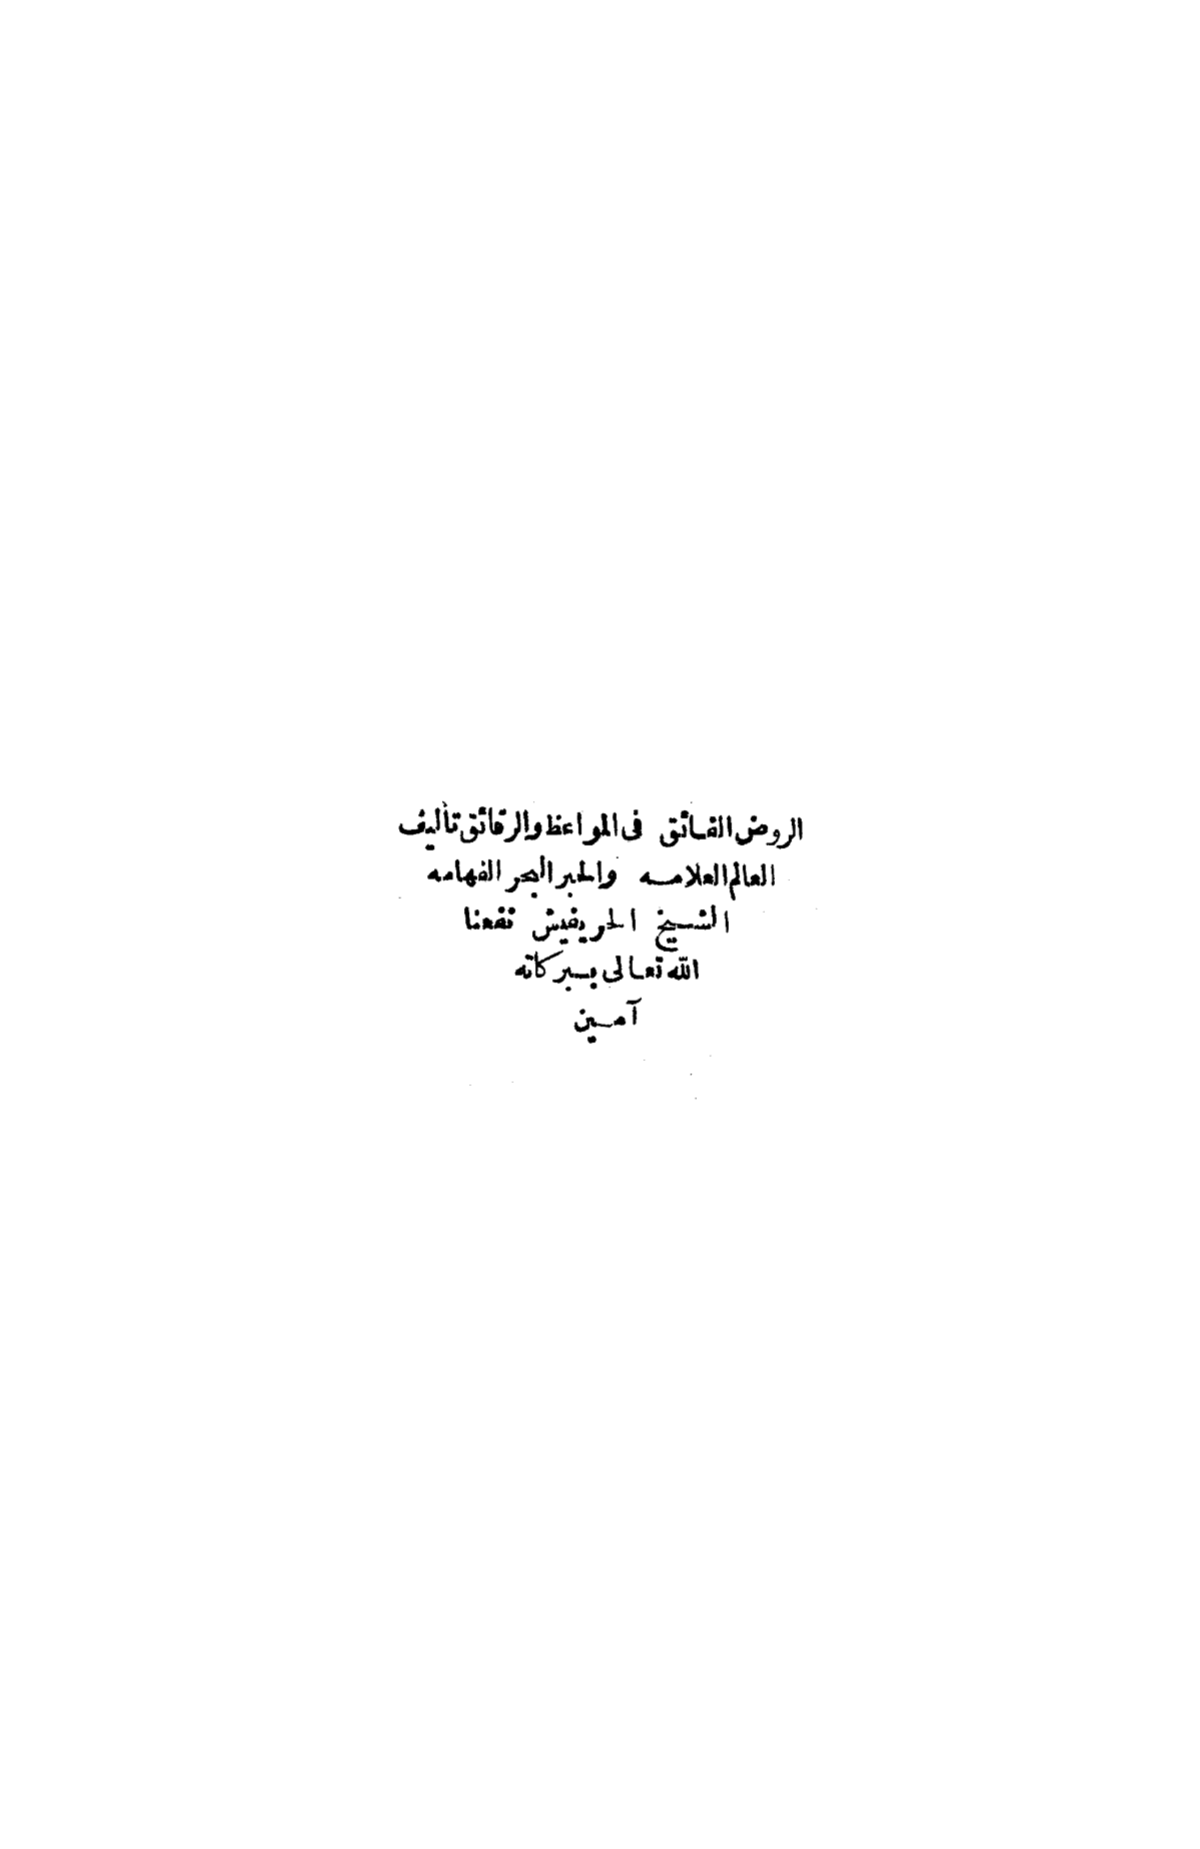 الروض الفائق فى المواعظ والرقائق تأليف
العالم العلامه والحبر البحر الفهامه
الشيخ الحريفيش نفعنا
الله تعالى ببركاته
آمين